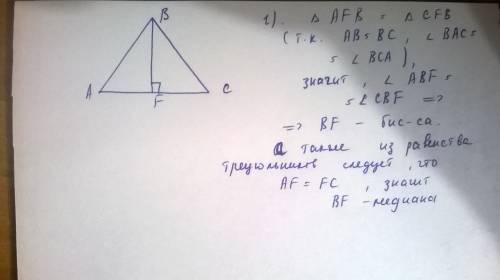 B
A
F
C
1). △ AFB = △ CFB
(т.к. AB=BC, ∠BAC=
= ∠BCA),
значит, ∠ABF=
=∠CBF =>
=> BF - бис-са.
А также из равенства
треугольников следует, что
AF = FC , значит
BF - медиана